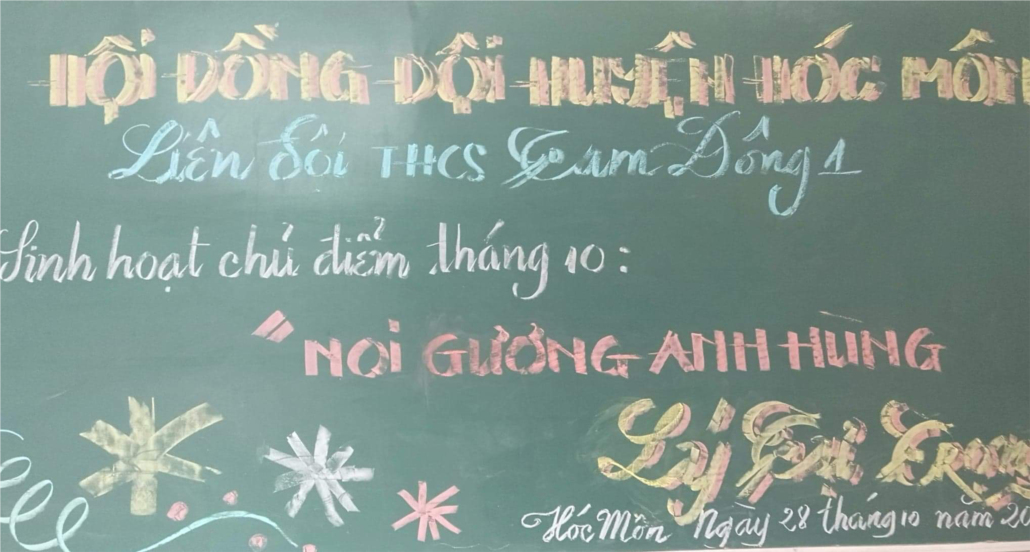 HỘI ĐỒNG ĐỘI HUYỆN HÓC MÔN
Liên đội THCS Tam Đông 1
Sinh hoạt chủ điểm tháng 10:
"NOI GƯƠNG ANH HÙNG
Lý Tự Trọng
Hóc Môn Ngày 28 tháng 10 năm 20